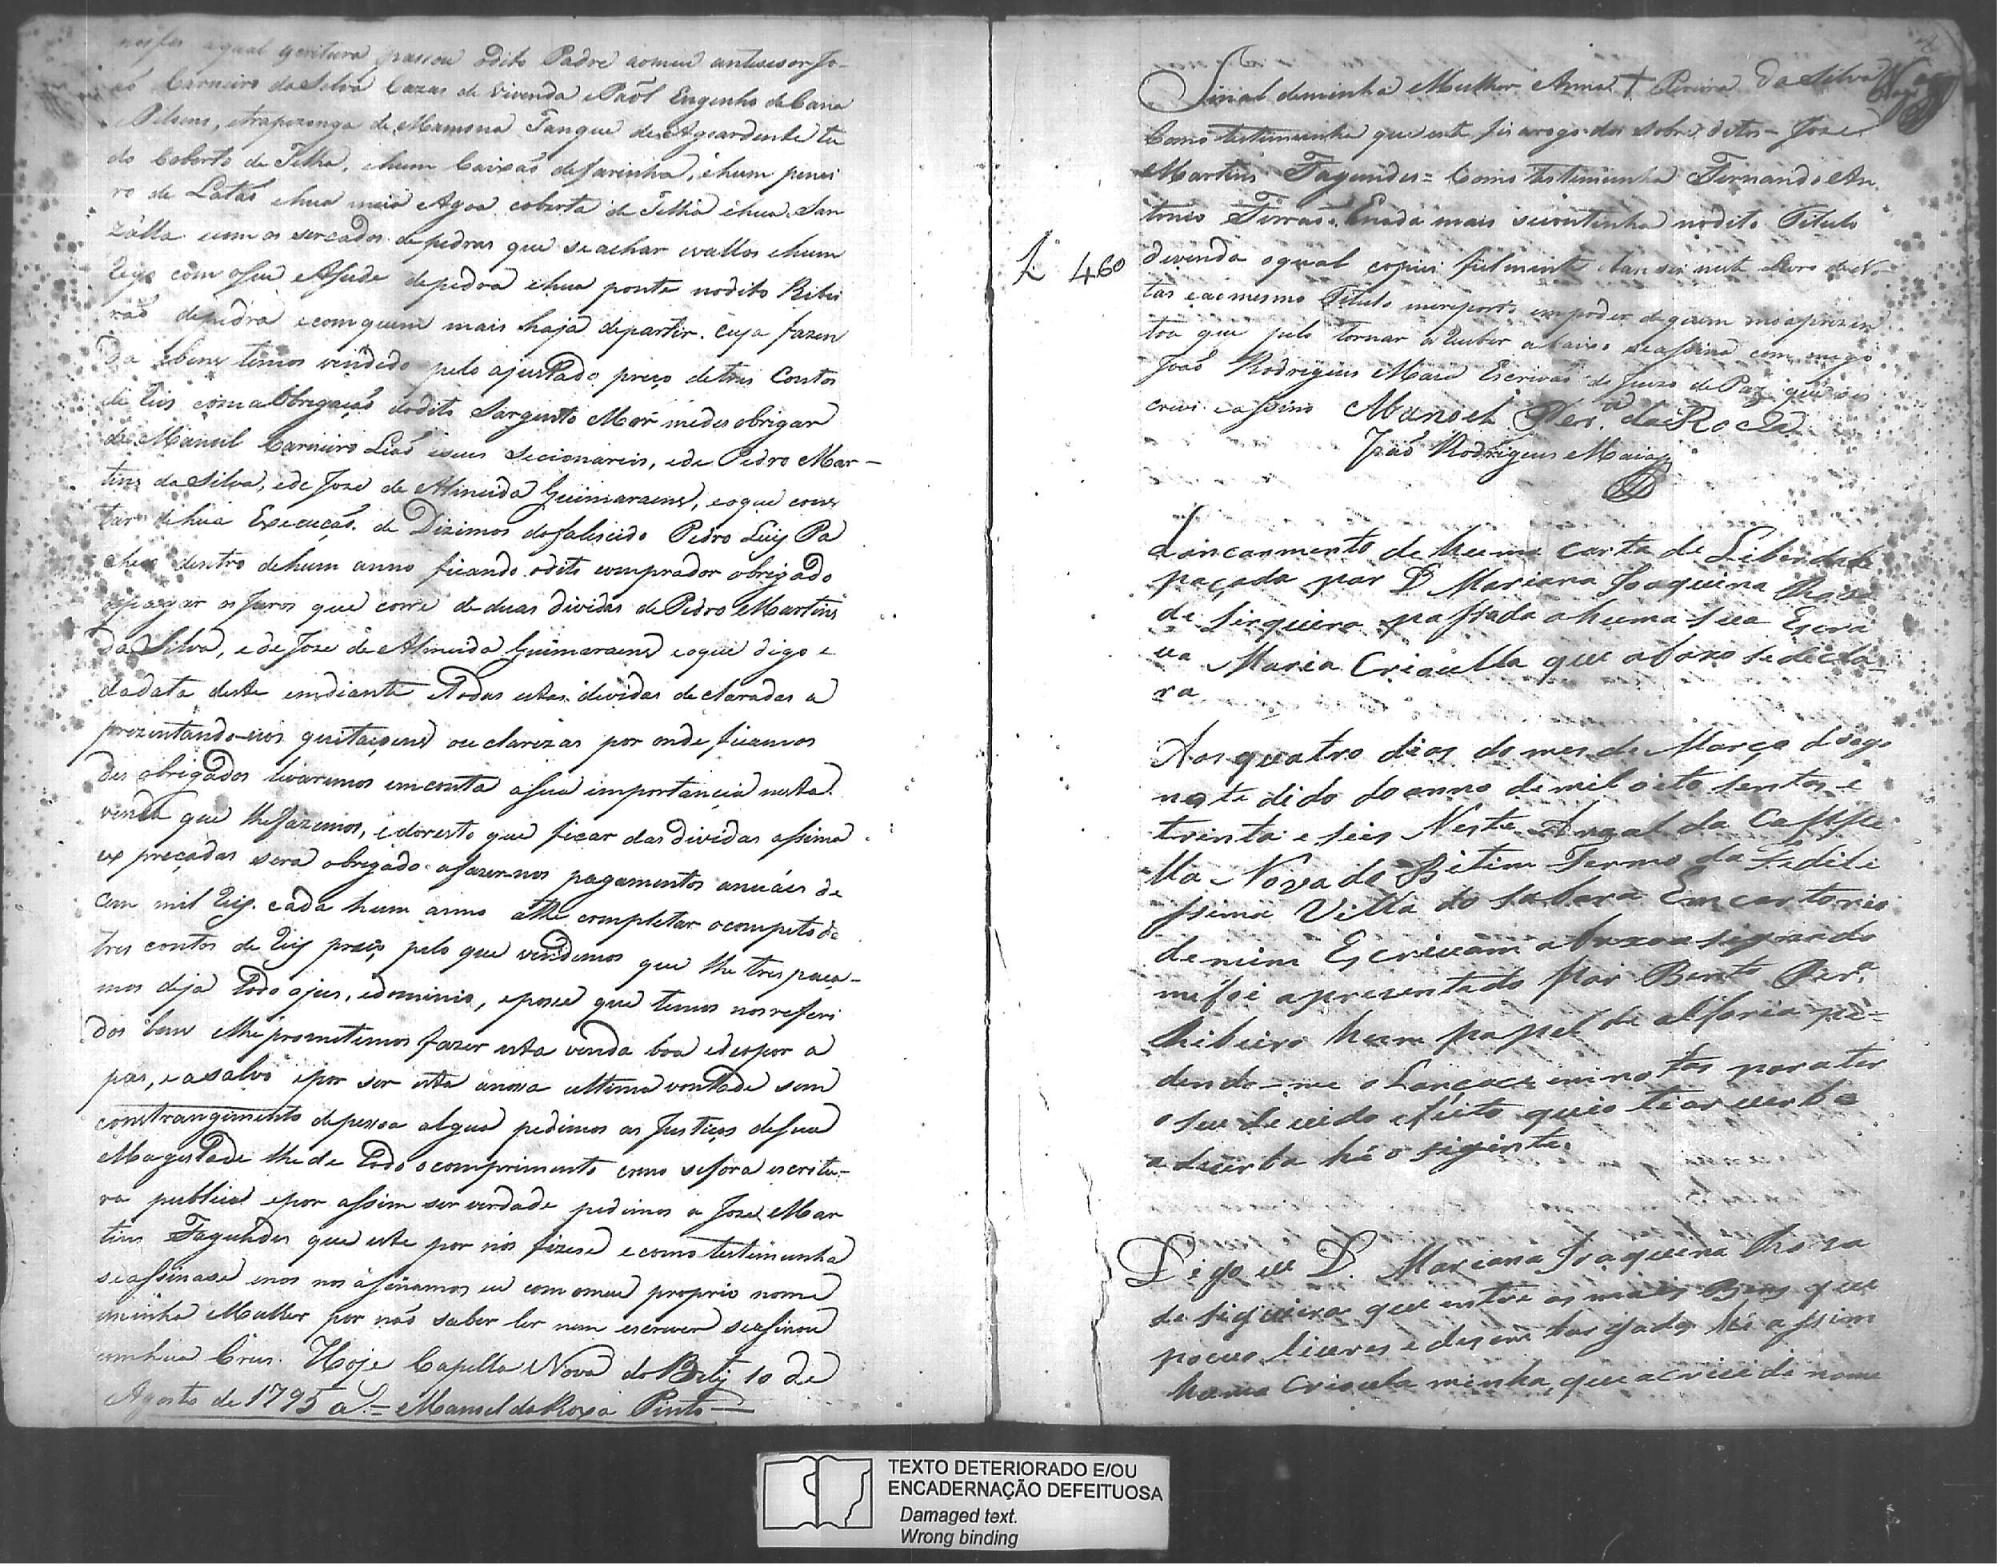 aqual escritura passou o dito Padre ao meu antesesor Jo-
aõ Carneiro da Silva Cazas de Vivenda e Paól Engenho de Cana
Piloens, etraperonga de Mamona Tanque de Agoardente tu
do Coberto de Telha, ehum Caixaõ defarinha, ehum penei
ro de Lataõ ehua meia Agoa coberta de Telha ehua San
zálla com os sercados depedras que seachar evallos ehum
Rego com oseu Asude depedra ehua ponte nodito Ribei
raõ depedra ecomquem mais haja departir. cuja fazen
da ebens temos vendido pelo ajustado preço detres Contos
de Reis comaObrigaçaõ dodito Sargento Mór medes obrigar
de Manoel Carneiro Leaõ eseus Secionareis, ede Pedro Mar-
tins da Silva, ede Joze de Almeida Guimaraens, eoque cons
tar dehua Execuçaõ de Dizimos dofalescido Pedro Luis Pa
checo dentro dehum anno ficando odito comprador obrigado
apagar osJuros que corre de duas dividas dePedro Martins
da Silva, e deJoze de Almeida Guimaraens eoque digo e
dadata deste emdiante eTodas estas dividas declaradas a
prezentando-nos quitaçoens ou clarezas por onde ficamos
des obrigados levaremos emconta asua importancia nesta
venda que lhefazemos, edoresto que ficar das dividas assima
ex preçadas sera obrigado afazer-nos pagamentos anuáes de
cem mil Reis. cada hum anno athe completar ocompeto de
tres contos de Reis preço pelo que vendemos que lhe trespaça-
mos deja Todo ojus, edominio, epose que temos nosreferi
dos bens elhe prometemos fazer esta venda boa edeopor a
pas, easalvo epor ser esta anosa ultima vontade sem
constrangimento depesoa algua pedimos as Justiças desua
Magestade lhe de Todo ocomprimento como sefora escritu-
ra publica epor assim ser verdade pedimos a Joze Mar
tins Fagundes que este por nós fizese ecomo testemunha
seassinase enos nos asinamos eu com omeu proprio nome
eminha Mulher por naõ saber ler nem escrever seasinou
comhua Crus. Hoje Capella Nova do Betij 10 de
Agosto de 1795 a.= Manoel da Roxa Pinto—
Sinal deminha Mulher Anna + Pereira da Silva
Como testemunha que este fis arogo dos sobre ditos - Joze
Martins Fagundes= Como testemunha Fernando An
tonio Ferraõ. Enada mais secontinha nodito Titulo
devenda oqual copiei fielmente elansei neste Livro de No
tas eaomesmo Titulo mereporto empoder dequem moaprezen
tou que pelo tornar a Receber abaixo seassina com migo
Joaõ Rodrigues Maia Escrivaõ do Juizo de Paz que es
crevi eassino Manoel Per.ª da Rocha
Joaõ Rodrigues Maia
L 460
Lancamento de huma carta de Liberdade
paçada por D Mariana Joaquina Roza
de Sirqueira passada ahuma sua Escra
va Maria Crioulla que abaxo sedecla-
ra
Aos quatro dias do mes de Março digo
do anno de mil oito sentos e
trinta e seis Neste Arraial da Cappe
lla Nova do Bitim Termo da Fedile
ssima Villa do Sabara Em cartorio
demim Escrivam abaxoasignado
mefoi apresentado por Bento Per.ª
Ribeiro hum papel de alforia pe=
dendo-me o Lançace eminotas parater
o seu devido efeito queio tiorverbo
adverba hé o siginte.
Digo eu D. Mariana Joaquina Roza
de siqueira que entre os mais Bens que
pocuo liveres e desem bargados hé assim
huma Crioula minha que acriei de nome
TEXTO DETERIORADO E/OU
ENCADERNAÇÃO DEFEITUOSA
Damaged text.
Wrong binding